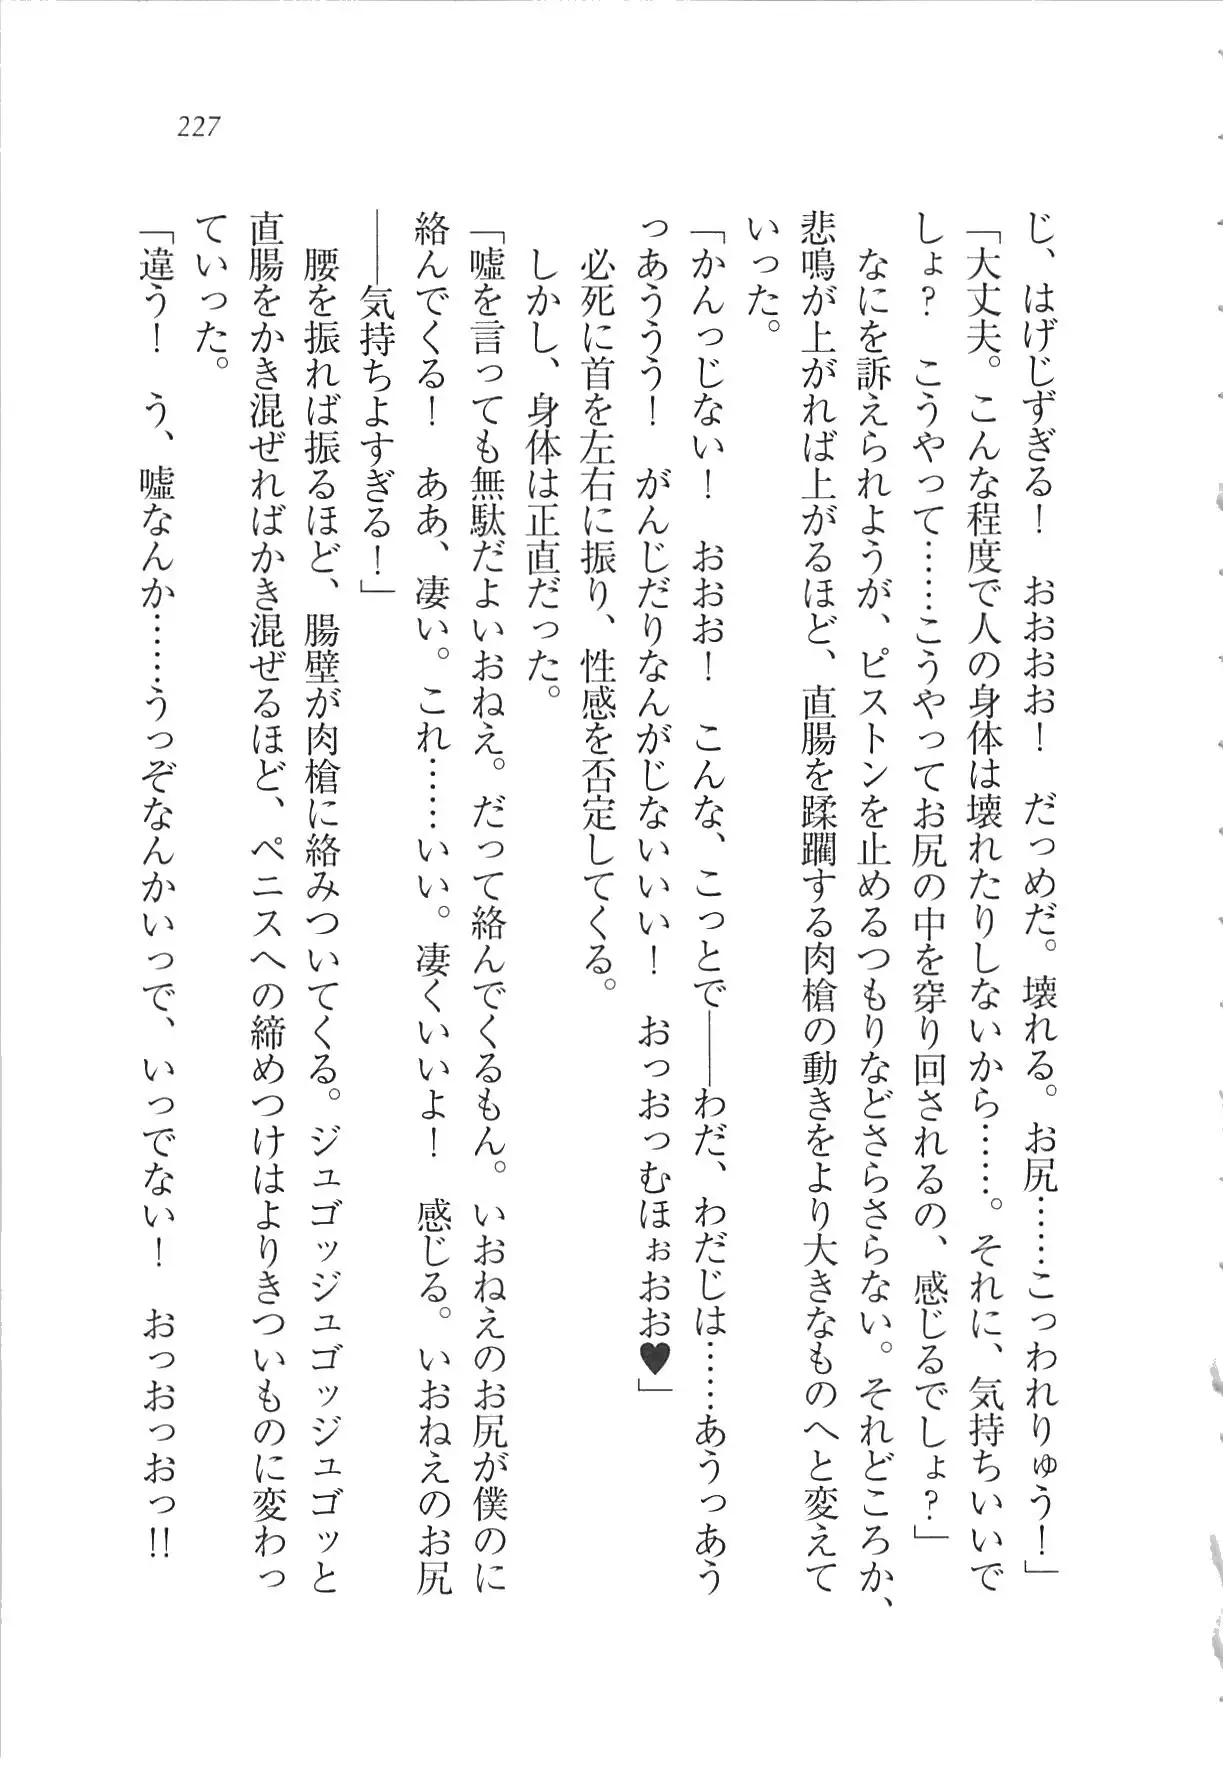 227
じ、はげじずぎる！　おおおお！　だっめだ。壊れる。お尻……こっわれりゅう！」
「大丈夫。こんな程度で人の身体は壊れたりしないから……。それに、気持ちいいで
しょ？　こうやって……こうやってお尻の中を穿り回されるの、感じるでしょ？」
　なにを訴えられようが、ピストンを止めるつもりなどさらさらない。それどころか、
悲鳴が上がれば上がるほど、直腸を蹂躙する肉槍の動きをより大きなものへと変えて
いった。
「かんっじない！　おおお！　こんな、こっとで――わだ、わだじは……あうっあう
っあううう！　がんじだりなんがじないいい！　おっおっむほぉおお♥」
　必死に首を左右に振り、性感を否定してくる。
　しかし、身体は正直だった。
「嘘を言っても無駄だよいおねえ。だって絡んでくるもん。いおねえのお尻が僕のに
絡んでくる！　ああ、凄い。これ……いい。凄くいいよ！　感じる。いおねえのお尻
――気持ちよすぎる！」
　腰を振れば振るほど、腸壁が肉槍に絡みついてくる。ジュゴッジュゴッジュゴッと
直腸をかき混ぜればかき混ぜるほど、ペニスへの締めつけはよりきついものに変わっ
ていった。
「違う！　う、嘘なんか……うっぞなんかいっで、いっでない！　おっおっおっ!!